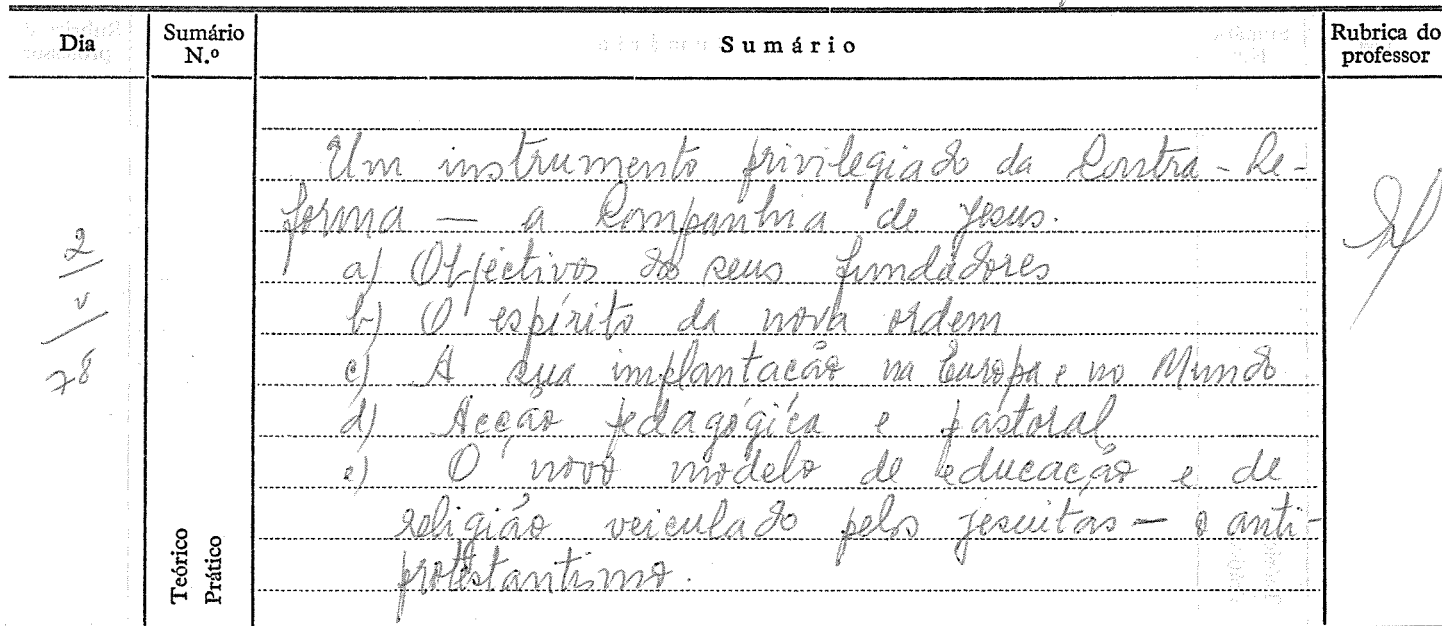 Dia
Sumário N.º
Sumário
Rubrica do professor
2/V/78
Um instrumento privilegiado da Contra-Re-
forma — a Companhia de Jesus.
a) Objectivos dos seus fundadores
b) O espírito da nova ordem
c) A sua implantação na Europa e no Mundo
d) Acção pedagógica e pastoral
e) O novo modelo de educação e de
religião veiculado pelos jesuítas — o anti-
protestantismo.
Teórico
Prático